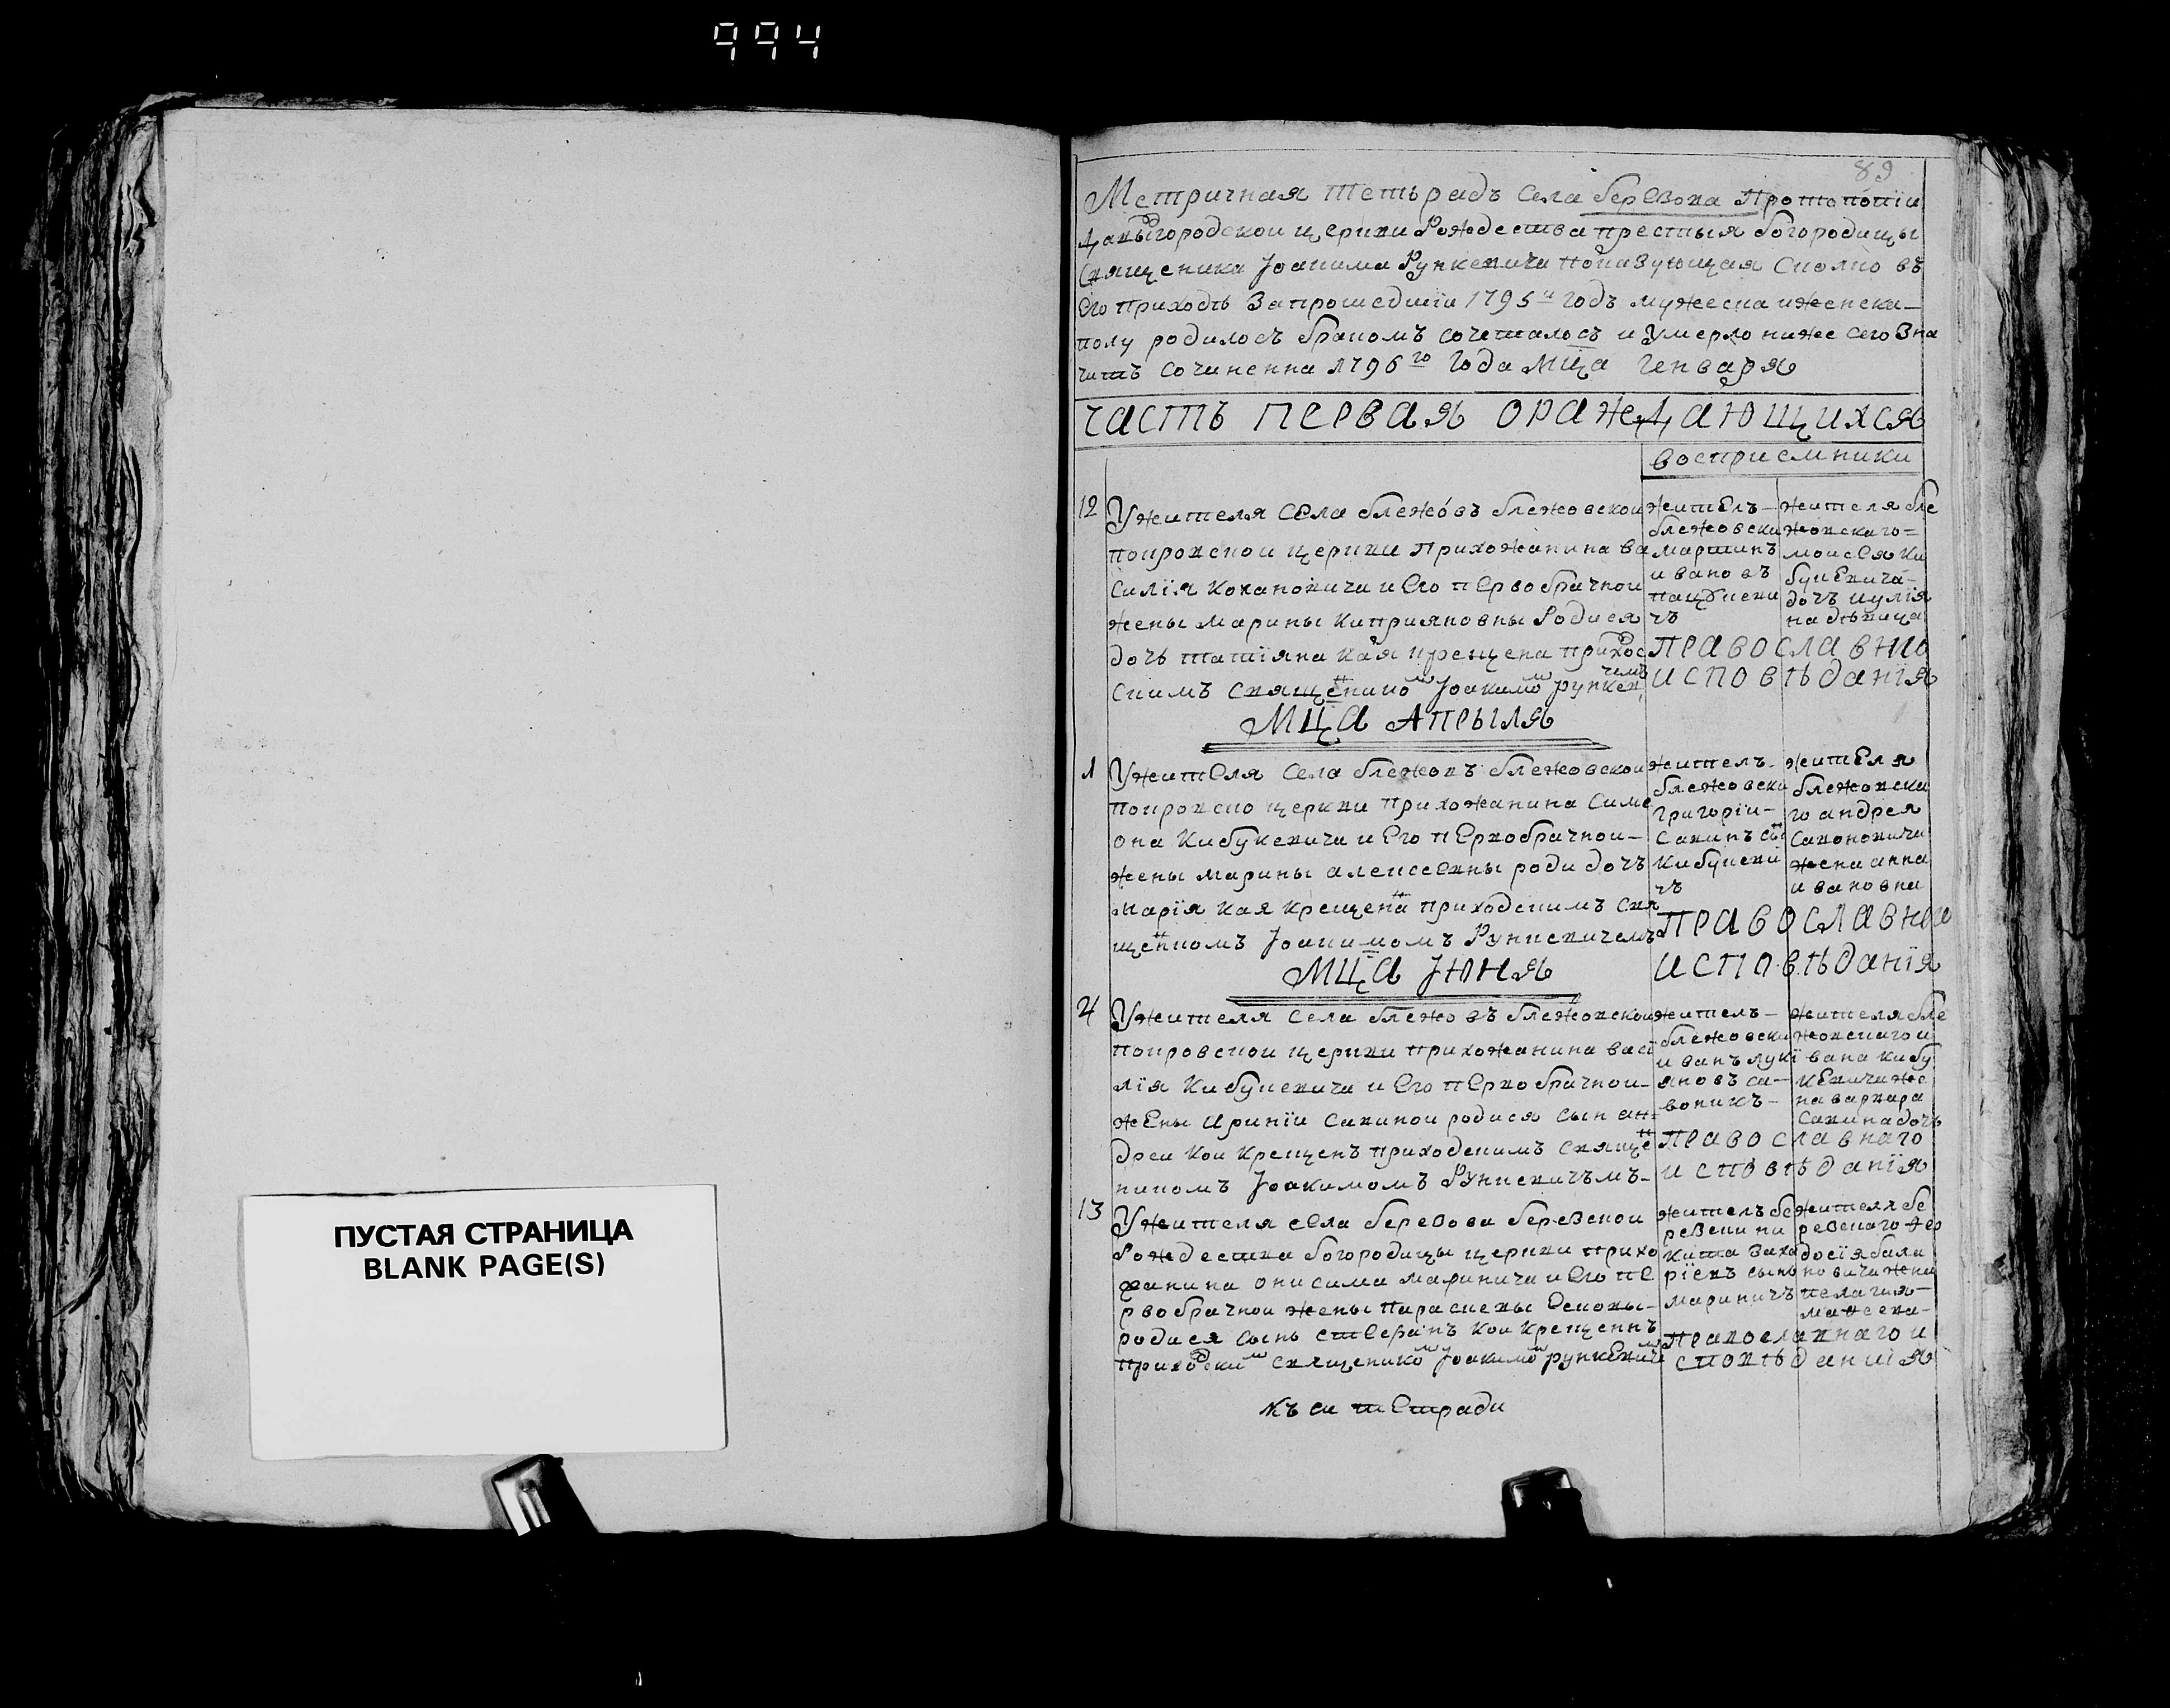 994
ПУСТАЯ СТРАНИЦА
BLANK PAGE(S)
89
Метричная тетьрадъ села берЕвока Протопопїи
Давыгородской церкви Рождества престыя богородицы
Священика Іоакима Рункевича показующая сколко въ
Его приходѣ за прошедшїи 1795й годъ мужеска и женска
полу родилось бракомъ сочеталось и умерло ниже сего зна
читъ сочиненна 1796го года мца генваря
часть первая о раждающихся
восприемники
12
У жителя села блежовъ блежовской
покровской церкви прихожанина ва
силїя Кохановича и Его пЕрвобрачной
жены марины Киприяновны родися
дочь татїяна кая крещена приход
скимъ священико Іоакимо рункевичемъ
житЕль
блежовски
мартинъ
ивановъ
пацкеви
чъ
жителя бле
жовскаго
моисЕя Ки
букЕвича
дочъ иулїя
на дѣвица
православно
исповѣданїя
мца Апрыля
1
У житЕля села блежовъ блежовской
покровско церкви прихожанина Симе
она Кибукевича и Его пЕрвобрачной
жены марины алексеЕвны роди дочъ
марїя кая крещена приходскимъ свя
щенкомъ Іоакимомъ Рункевичемъ
жителъ
блежовски
григорїи
Савинъ сы
Кибукеви
чъ
житЕля
блежовска
го андрея
Савоновича
жена анна
ивановна
православно
исповѣданїя
мца Іюня
4
У жителя села блежовъ блежовской
покровской церкви прихожанина васи
лїя Кибукевича и Его пЕрвобрачной
жЕны иринїи Савиной родися сын ан
дреи кои крещенъ приходскимъ священ
никомъ Іоакимомъ Рункевичъмъ
жителъ
блежовски
иванъ луки
яновъ са
воникъ
жителя бле
жовскаго и
вана кибу
кЕвича же
на варвара
Савина дочъ
православнаго
исповѣданїя
13
У жителя сЕла березова березской
Рождества богородицы церкви прихо
жанина онисима маринича и Его пЕ
рвобрачной жены параскевы
родися сынъ стЕфанъ кои крещеннъ
приходски священико Іоакимо рункЕвиче
жителъ бе
кита заха
рїевъ сынъ
мариничъ
жителя бе
досїя бала
новича жена
пелагия
православнаго и
споѣданиїя
къ си тЕтради